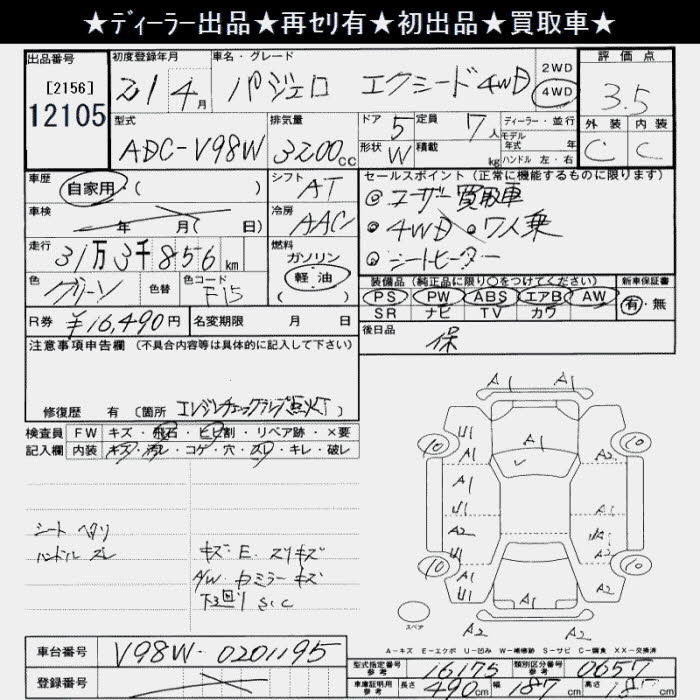 ★ﾃﾞｨｰﾗｰ出品★再ｾﾘ有★初出品★買取車★
出品番号 初度登録年月 車名・グレード 評価点
[2156] 21 4月 パジェロ エクシード4WD 2WD 4WD 3.5
12105 型式 排気量 ドア 定員 ディーラー・並行 外装 内装
ADC-V98W 3200cc 5 7人 モデル年式 年 C C
形状 W 積載 kg ハンドル 左・右
車歴 自家用・( ) シフト AT セールスポイント(正常に機能するものに限ります)
◎ユーザー買取車
車検 年 月( 日) 冷房 AAC ◎4WD ◎7人乗
走行 31万3千856km 燃料 ガソリン 軽油 ◎シートヒーター
色 グリーン 色替 色コード F15 装備品(純正品に限り○をつけてください) 新車保証書
PS PW ABS エアB AW 有・無
R券 ¥16,490円 名変期限 月 日 SR ナビ TV カワ
後日品 保
注意事項申告欄(不具合内容等は具体的に記入して下さい)
修復歴 有(箇所 エンジンチェックランプ点灯)
検査員 FW キズ・飛石・ヒビ割・リペア跡・×要
記入欄 内装 キズ・汚レ・コゲ・穴・スレ・キレ・破レ
シート ヘタリ
ハンドル スレ
キズ・E. スリキズ
A/W・ドミラーキズ
下廻り S.C
A1 A1
10 U1 A1 10
A1 A2
U1 A1 A1
A2
A1 A2
10 U1 A1 10
A2 A2
スペア
A-キズ E-エクボ U-凹み W-補修跡 S-サビ C-腐食 XX-交換済
車台番号 V98W-0201195 型式指定番号 参考 16175 類別区分番号 参考 0657
登録番号 車庫証明用 参考 長さ 490cm 幅 187cm 高さ cm